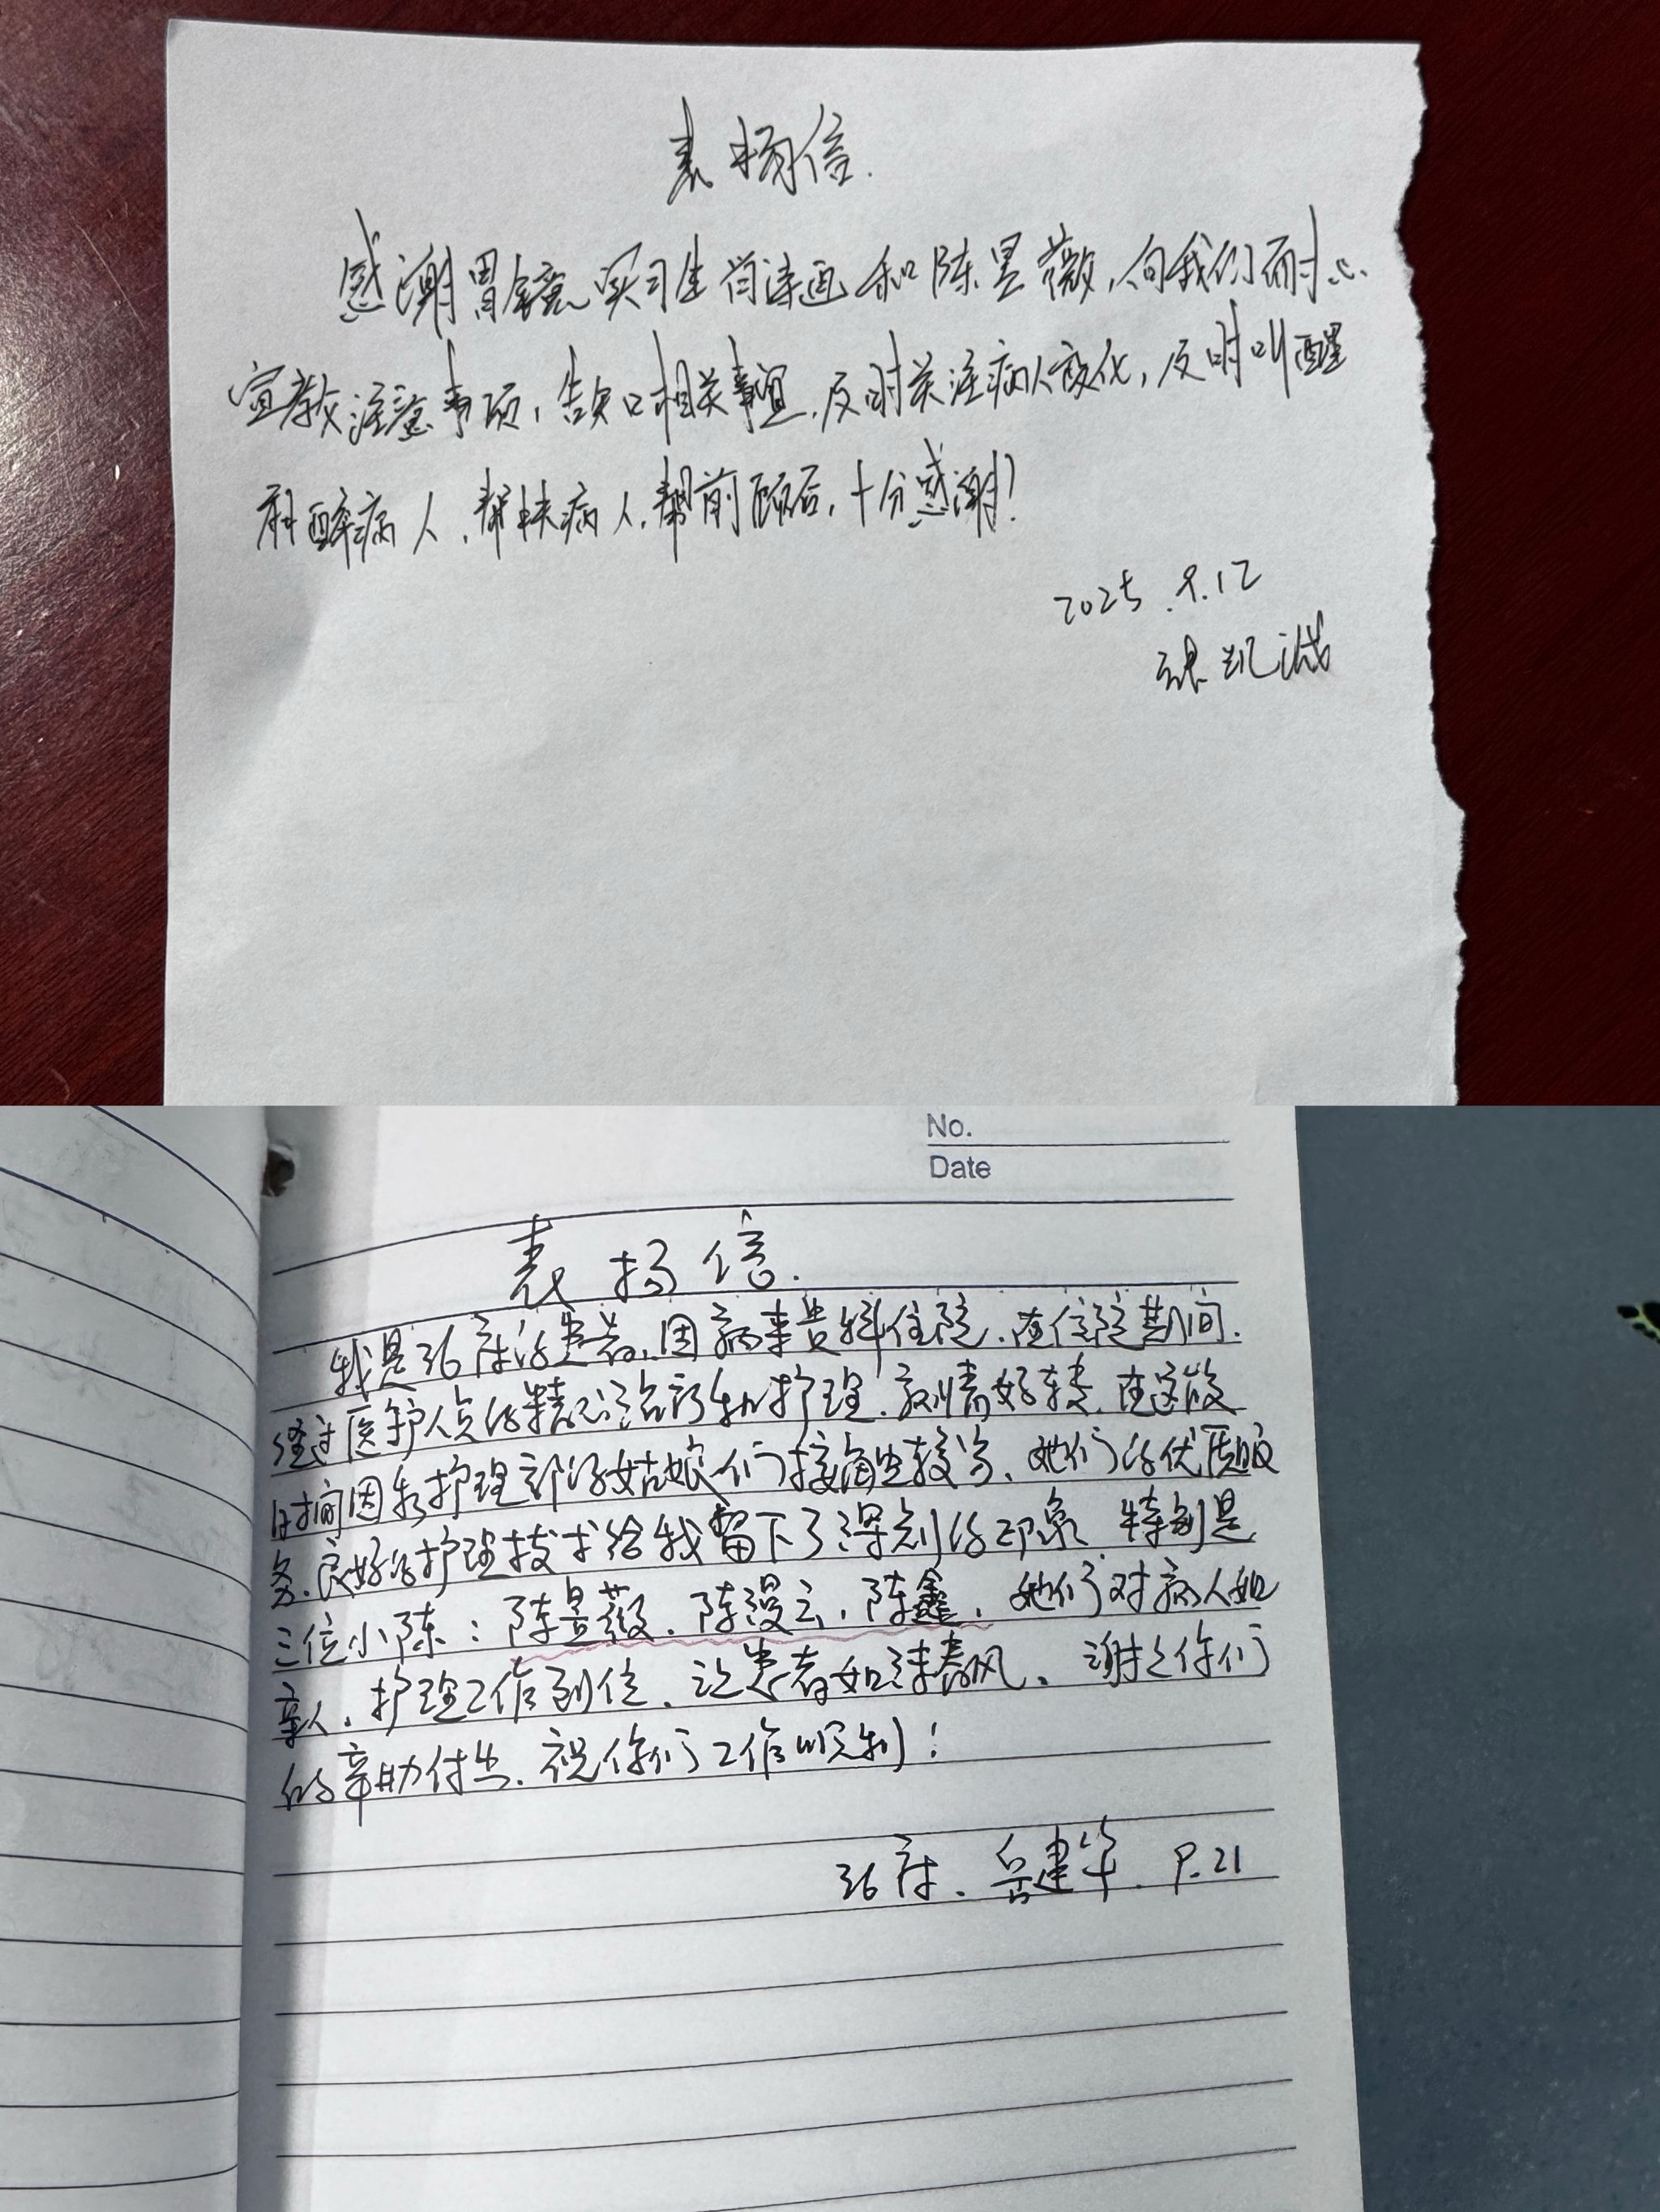 表扬信.
感谢胃镜实习生肖诗画和陈昱薇,向我们耐心
宣教注意事项,告知相关事宜.及时关注病人变化,及时叫醒
麻醉病人.帮扶病人.帮前顾后,十分感谢!
2025.9.12
张凯诚
No.
Date
表扬信.
我是36床的患者,因病来贵科住院.在住院期间.
经过医护人员的精心治疗和护理.病情好转.在这段
时间因和护理部的姑娘们接触比较多、她们的优质服
务.良好的护理技术给我留下了深刻的印象.特别是
三位小陈:陈昱薇.陈漫云,陈鑫.她们对病人如
亲人.护理工作到位.让患者如沐春风.谢谢你们
的辛勤付出.祝你们工作顺利!
36床.岳建华.9.21